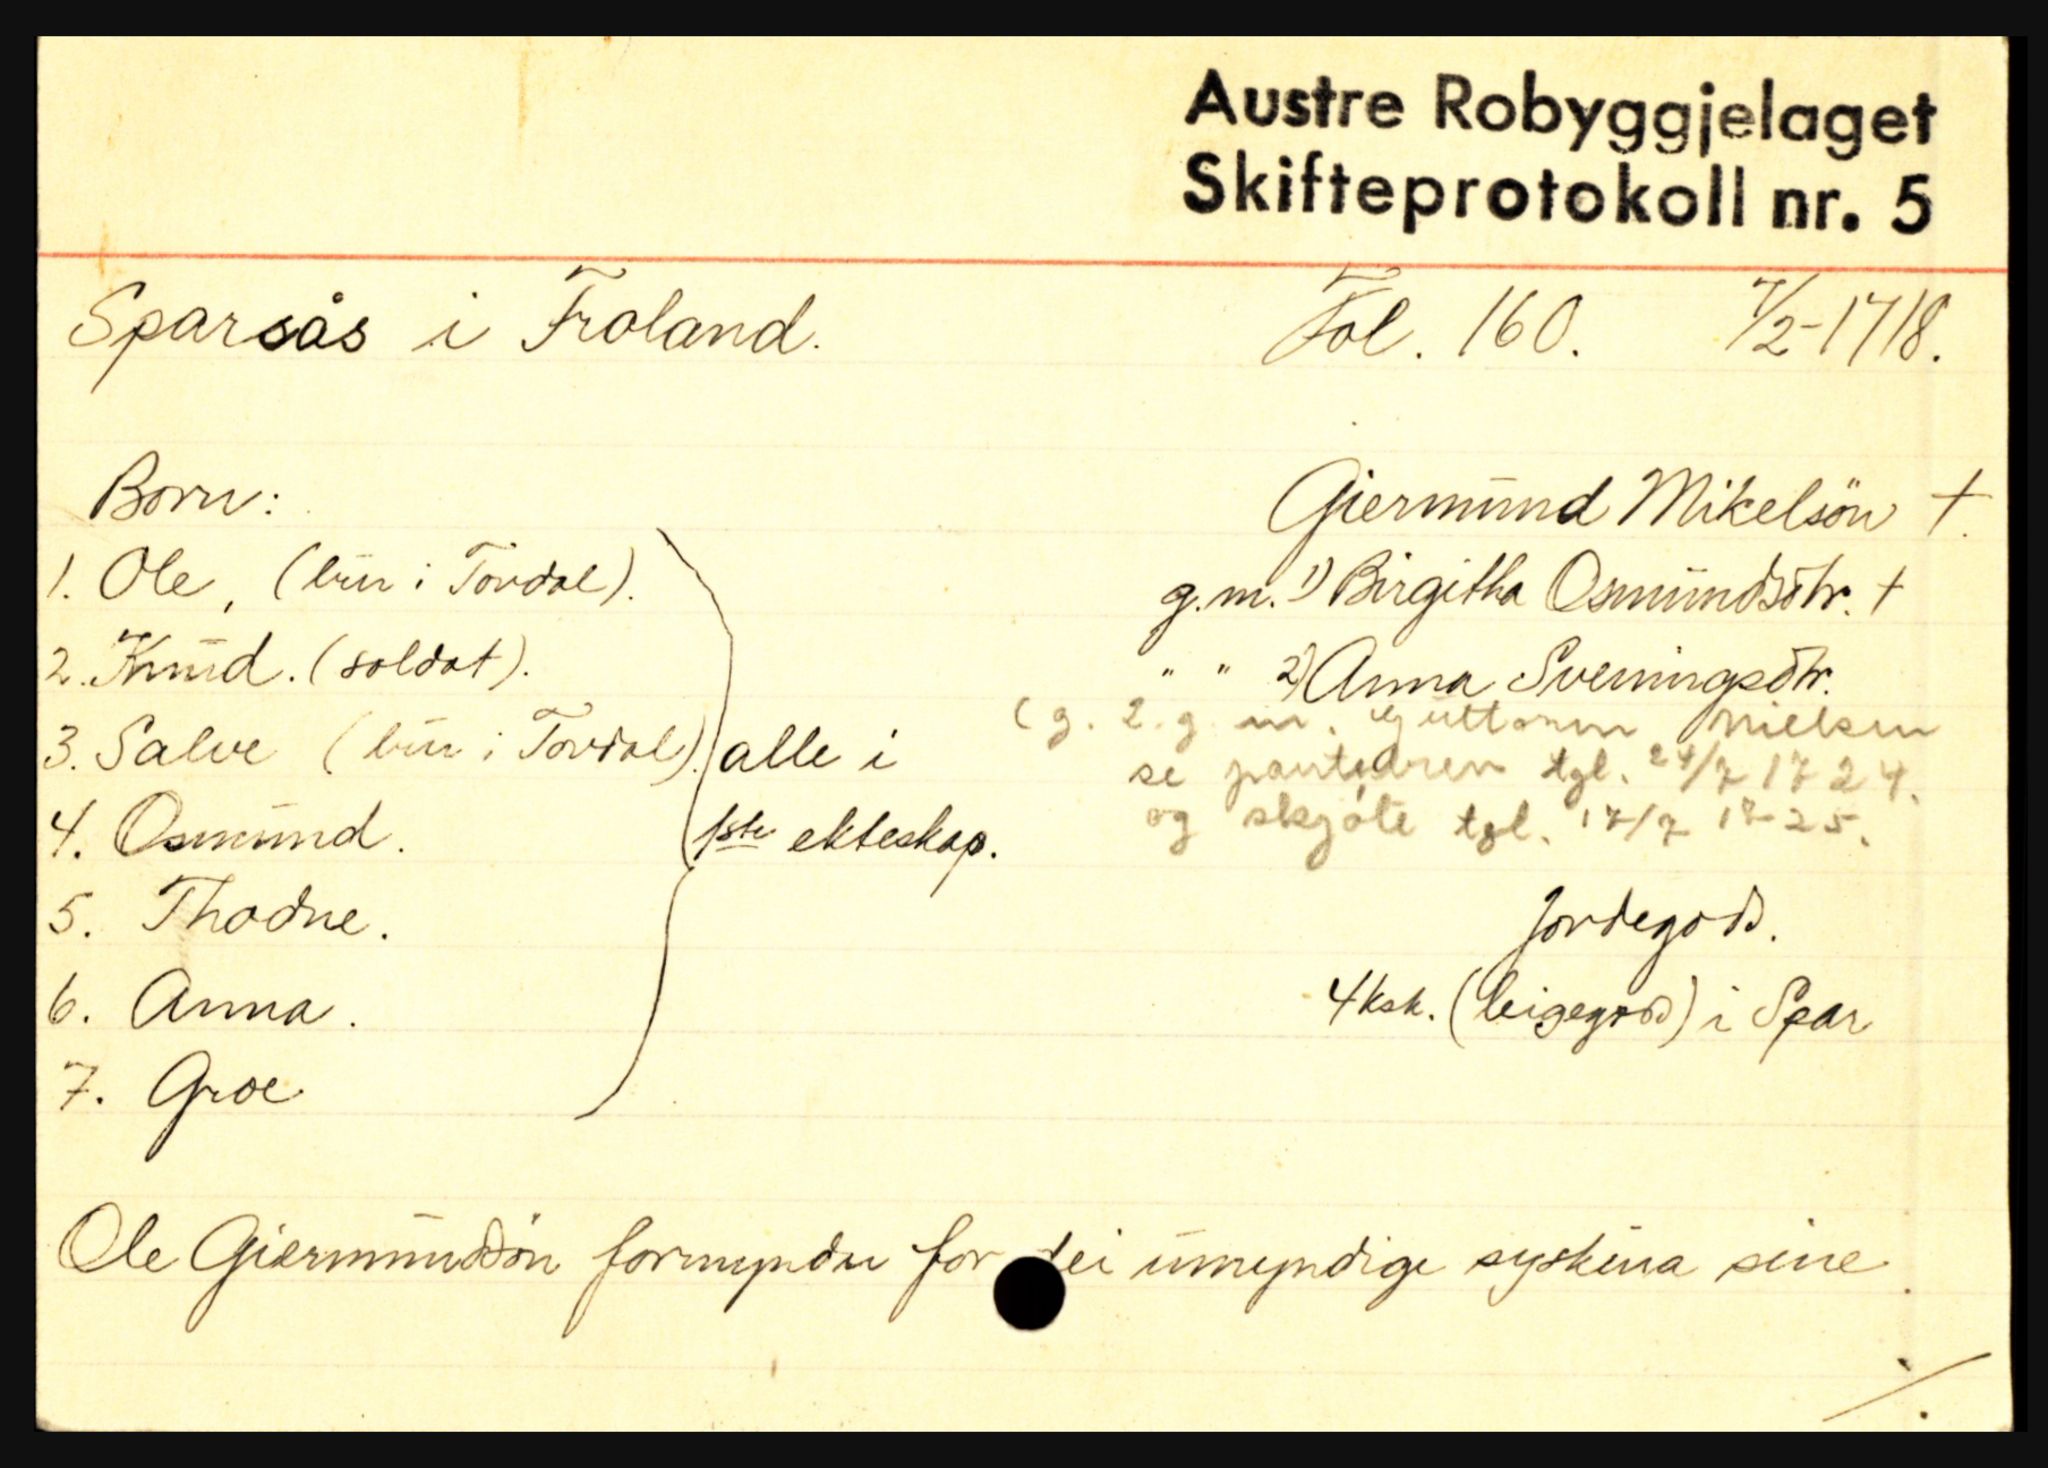 Austre Robyggjelaget
Skifteprotokoll nr. 5
Sparsås i Froland.
Fol. 160. 7/2-1718.
Born:
1. Ole, (bur i Tovdal).
2. Knud. (soldat).
3. Salve (bur i Tovdal).
4. Osmund.
5. Thodne.
6. Anna.
7. Groe
alle i
1ste ekteskap.
Giermund Mikelsön †.
g.m. 1) Birgitha Osmundsdtr. †
" " 2) Anna Sveningsdtr.
(g. 2. g m. Guttorm Nielsen
se pantebrev tgl. 24/7 1724.
og skjöte tgl. 17/7 1725.
Jordegods.
4 ksk. (leigegods) i Spar
Ole Giermundsön formyndar for dei umyndige syskena sine.